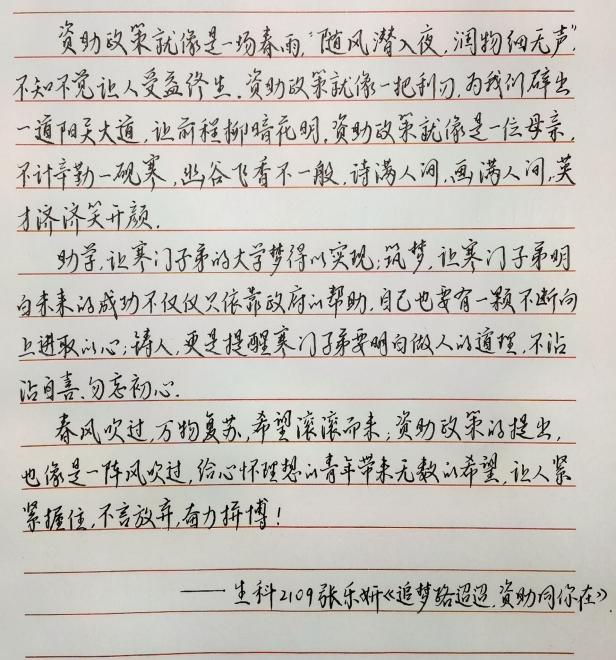 资助政策就像是一场春雨,“随风潜入夜,润物细无声”,
不知不觉让人受益终生.资助政策就像一把利刃,为我们碎出
一道阳关大道,让前程柳暗花明.资助政策就像是一位母亲,
不计辛勤一砚寒,幽谷飞香不一般,诗满人间,画满人间,英
才济济笑开颜.
助学,让寒门子弟的大学梦得以实现;筑梦,让寒门子弟明
白未来的成功不仅仅只依靠政府的帮助,自己也要有一颗不断向
上进取的心;铸人,更是提醒寒门子弟要明白做人的道理,不沾
沾自喜、勿忘初心.
春风吹过,万物复苏,希望滚滚而来;资助政策的提出,
也像是一阵风吹过,给心怀理想的青年带来无数的希望,让人紧
紧握住,不言放弃,奋力拼博!
——生科2109张乐妍《追梦路迢迢,资助同你在》